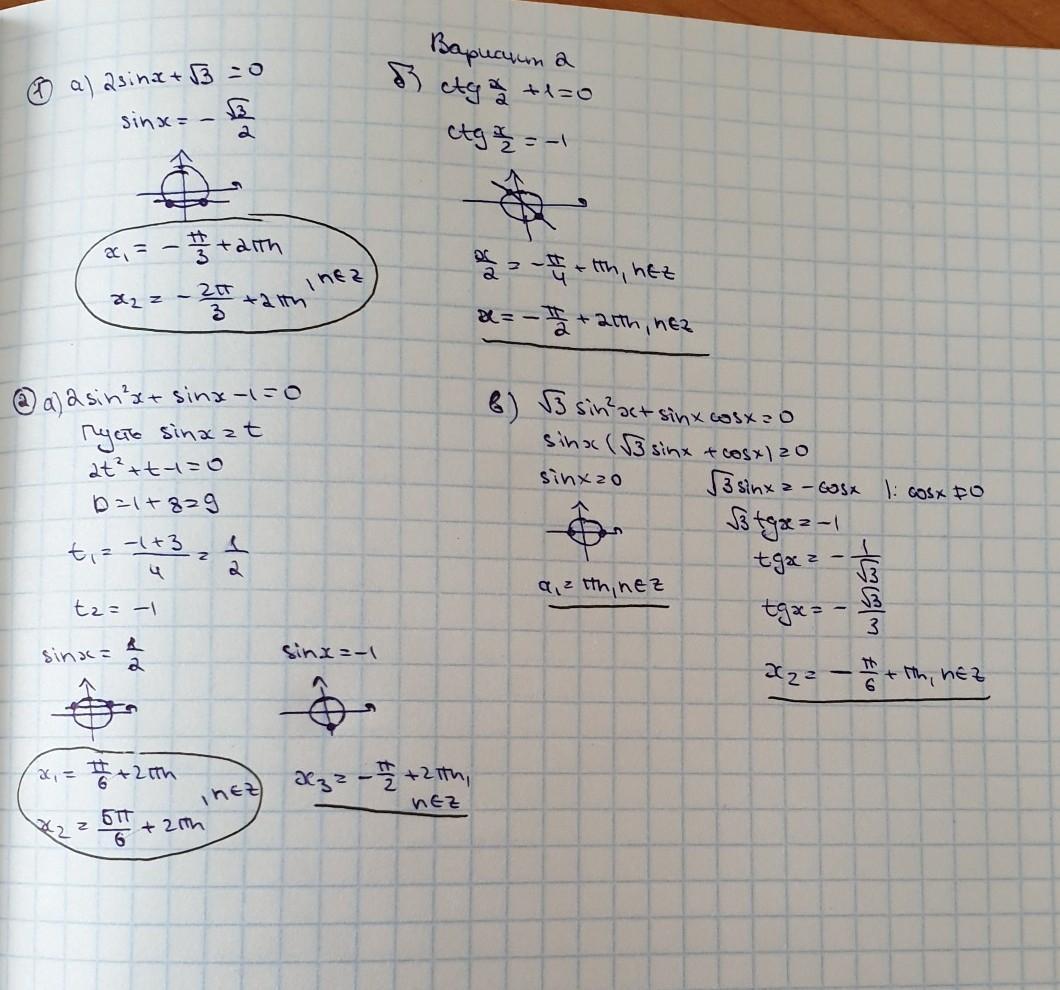 Вариант 2
① а) 2sinx + √3 = 0
sinx = - √3/2
x₁ = - π/3 + 2πn
x₂ = - 2π/3 + 2πn , n∈z
б) ctg x/2 + 1 = 0
ctg x/2 = -1
x/2 = - π/4 + πn, n∈z
x = - π/2 + 2πn, n∈z
② а) 2sin²x + sinx - 1 = 0
Пусть sinx = t
2t² + t - 1 = 0
D = 1 + 8 = 9
t₁ = (-1+3)/4 = 1/2
t₂ = -1
sinx = 1/2
x₁ = π/6 + 2πn
x₂ = 5π/6 + 2πn , n∈z
sinx = -1
x₃ = - π/2 + 2πn,
n∈z
в) √3 sin²x + sinx cosx = 0
sinx (√3 sinx + cosx) = 0
sinx = 0
x₁ = πn, n∈z
√3 sinx = - cosx |: cosx ≠ 0
√3 tgx = -1
tgx = - 1/√3
tgx = - √3/3
x₂ = - π/6 + πn, n∈z